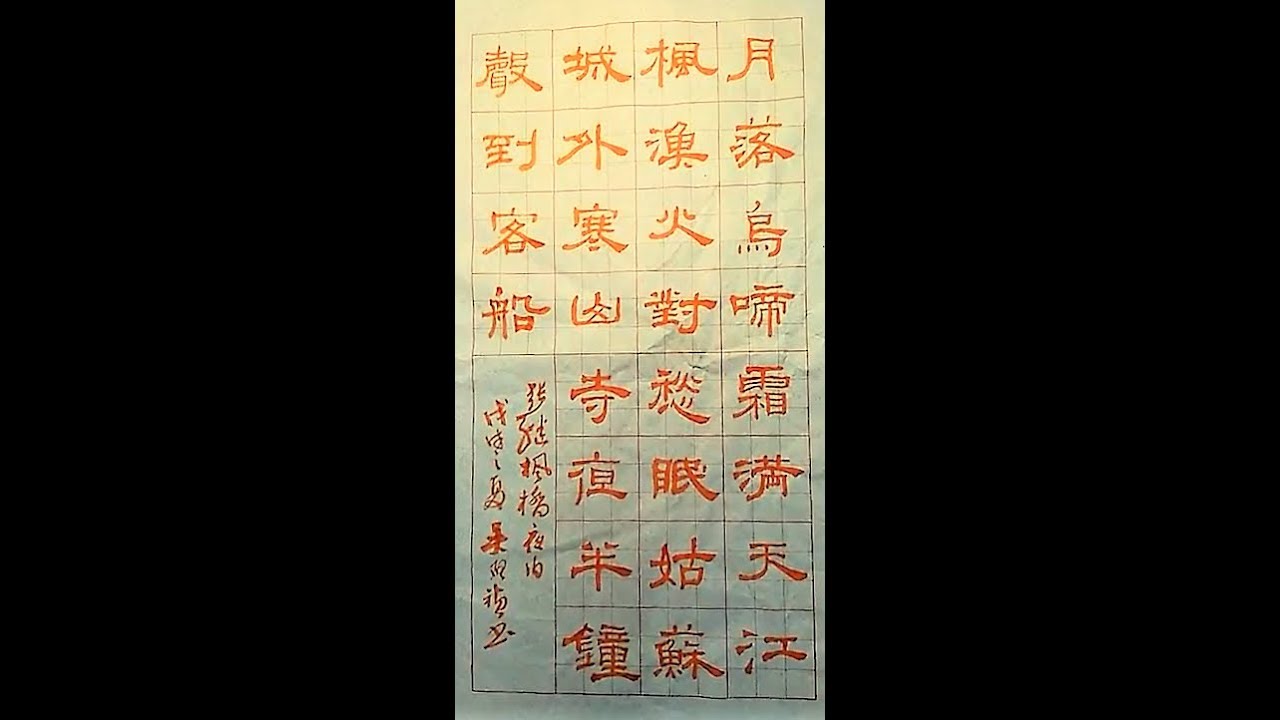 月落烏啼霜满天江
楓漁火對愁眠姑蘇
城外寒山寺夜半鐘
聲到客船
張繼楓橋夜泊
戊戌之夏吴书